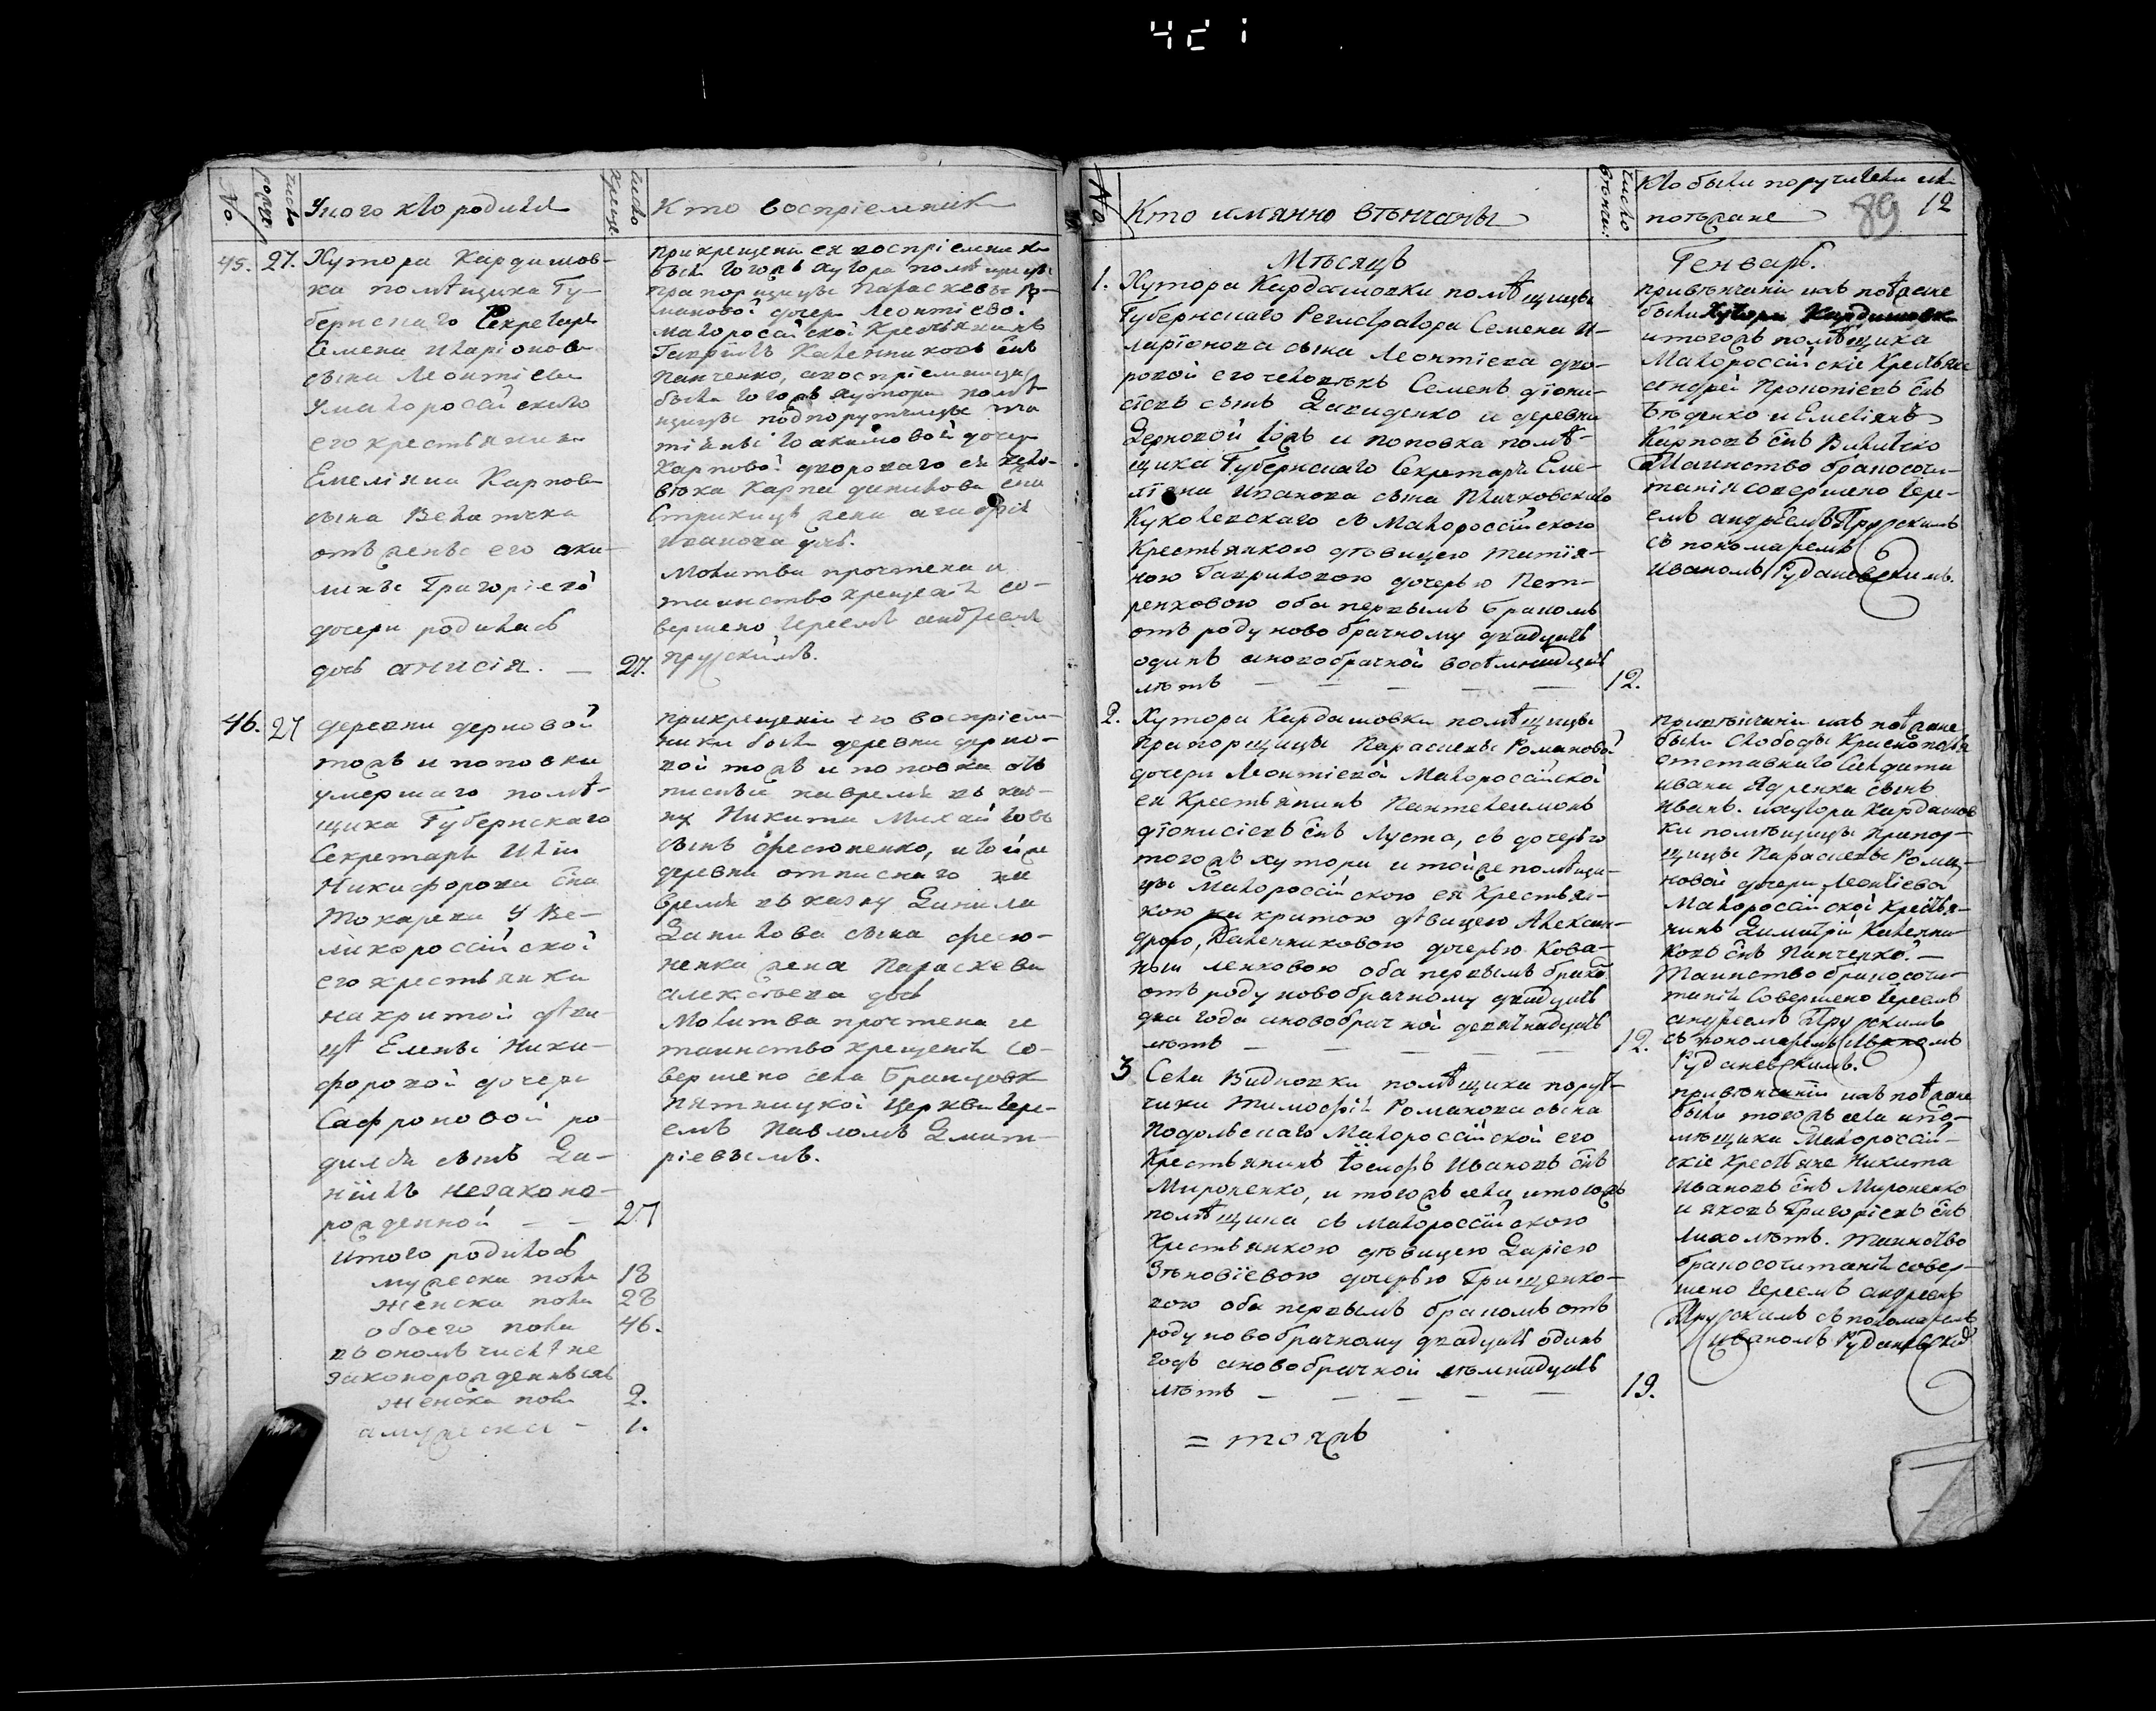 №.
число рожде
У кого кто родился
число креще.
Кто воспріемникъ
45.
27.
Хутора Кардашов-
ки помѣщика Гу-
бернскаго Секретаря
Семена Иларіонова
сына Леонтіева
у малороссійскаго
его крестьянина
Емеліяна Карпова
сына
отъ жены его аки-
лины Григоріевой
дочери родилась
дочь анисія. —
27.
при крещеніи ея воспріемники
были тогожъ хутора помѣщицы
прапорщицы Параскевы Ро-
мановой дочери Леонтіево.
малоросійской Крестьянинъ
Гавріилъ Каленниковъ снъ
Панченко, а воспріемница
была тогожъ хутора помѣ-
щицы подпорутчицы та
тіяны Иоакимовой дочери
Карповой двороваго ея чело-
вѣка Карпа данилова сна
жена агафія
иванова дчь.
Молитва прочтена и
таинство крещенія со-
вершено Іереемъ андреемъ
прускимъ.
46.
27
деревни дерновой
тожъ и поповки
умершаго помѣ-
щика Губернскаго
Секретаря Ильи
Никифорова сна
Токарева у Ве-
ликороссійской
его крестьянки
накритой дѣви-
цѣ Елены Ники-
форовой дочери
Сафроновой ро-
дился сынъ Да-
ніилъ незаконо-
рожденной — —
27
при крещеніи его воспріем-
ники были деревни дерно-
вой тожъ и поповки от
писные навремя въ каз-
ну Никита Михайловъ
сынъ фесюненко, и тойже
деревни отписнаго на
время въ казну Данила
Данилова сына фесю-
ненка жена Параскева
алексѣева дчь
Молитва прочтена и
таинство крещенія со-
вершено села Бранцовки
Пятницкой Церкви Іере-
емъ Павломъ Дмит-
ріевымъ.
Итого родилось
мужеска пола 18
женска пола 28
обоего пола 46.
въ ономъ числѣ не
законорожденныхъ
женска пола 2.
а мужеска — 1.
№
Кто имянно вѣнчаны
число вѣнчані:
Кто были поручители или
поѣзжане
89
12
Мѣсяцъ
Генварь.
1.
Хутора Кардашовки помѣщицы
Губернскаго Регистратора Семена И-
ларіонова сына Леонтіева дво-
ровой его человѣкъ Семенъ діони-
сіевъ сынъ Давиденко и деревни
Дерновой тожъ и поповка помѣ-
щика Губернскаго Секретаря Еме-
ліяна Иванова сына
съ Малороссійского
Крестьянкою дѣвицею татія-
ною Гавриловою дочерью Пет-
ренковою оба первымъ бракомъ
отъ роду новобрачному двадцать
одинъ а новобрачной восѣмнадцать
лѣтъ — — — — —
12.
при вѣнчаніи ихъ поѣзжане
были хутора Кардашовки
и тогожъ помѣщика
Малороссійскіе Крестьяне
андрей Прокопіевъ снъ
Бѣденко и Емеліянъ
Карповъ снъ
Таинство бракосоче-
танія совершено Іере-
емъ андреемъ Прускимъ
съ пономаремъ
Иваномъ Рудановскимъ.
2.
Хутора Кардашовки помѣщицы
Прапорщицы Параскевы Романовой
дочери Леонтіевой Малороссійской
ея Крестьянинъ Пантелеимонъ
діонисіевъ снъ Луста, съ дочерью
тогожъ хутора и тойже помѣщи-
цы Малороссійскою ея Крестьян-
кою накритою дѣвицею Алексан-
дрою, Каленниковою дочерью Кова-
ленковою оба первымъ брако
отъ роду новобрачному двадцать
два года а новобрачной девятнадцать
лѣтъ — — — — —
12.
при вѣнчаніи ихъ поѣзжане
были слободы Краснополья
отставнаго Солдата
ивана Ядренка сынъ
Иванъ. и хутора Кардашов
ки помѣщицы Прапор-
щицы Параскевы Рома-
новой дочери Леонтіевой
Малороссійской Крестья-
нинъ Димитрій Каленни-
ковъ снъ Панченко. —
Таинство бракосоче-
танія Совершено Іереемъ
андреемъ Прускимъ
съ пономаремъ Иваномъ
Рудановскимъ.
3
Села Видновки помѣщика порут-
чика Тимофея Романова сына
Подольскаго Малороссійской его
Крестьянинъ Іосифъ Ивановъ снъ
Мироненко, и тогожъ села, и тогожъ
помѣщика съ малороссійскою
Крестьянкою дѣвицею Даріею
Зѣновіевою дочерью Грищенко-
вою оба первымъ бракомъ отъ
роду новобрачному двадцать одинъ
годъ а новобрачной
лѣтъ — — — — —
19.
при вѣнчаніи ихъ поѣзжане
были тогожъ села и по-
мѣщика Малороссій-
скіе Крестьяне Никита
Ивановъ снъ Мироненко
и яковъ Григоріевъ снъ
Таинство
бракосочитанія совер-
шено Іереемъ андреемъ
Прускимъ съ пономаремъ
Иваномъ Рудановским
= тожъ